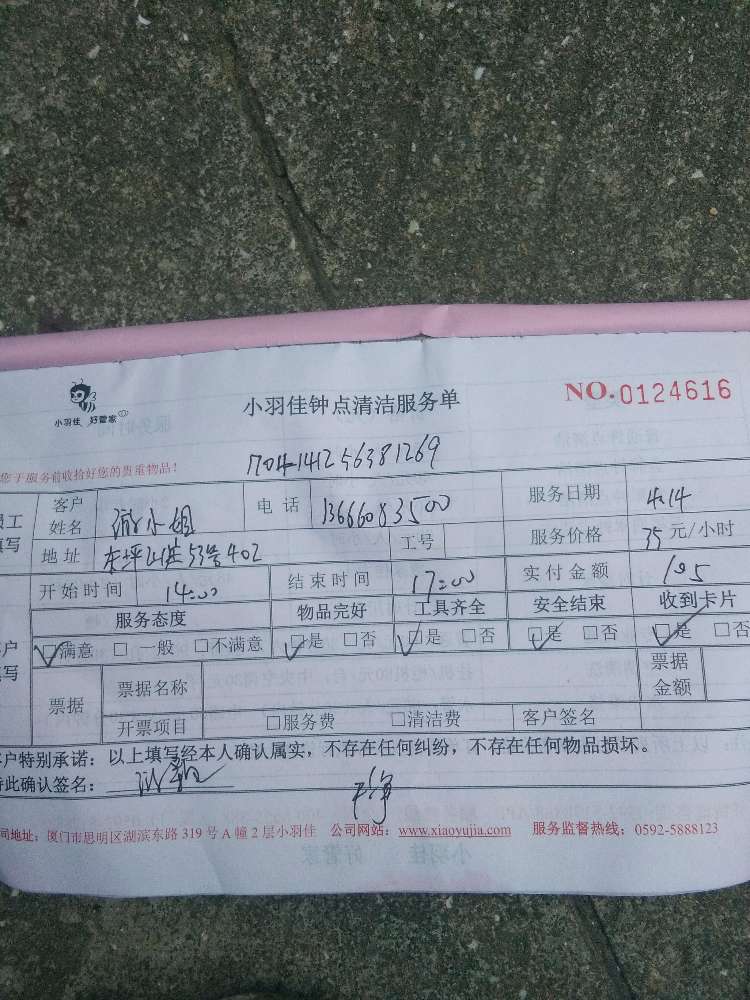 小羽佳 好管家
小羽佳钟点清洁服务单
NO.0124616
您于服务前收拾好您的贵重物品！
170414125638 1269
员工填写
客户姓名 小姐 电话 13666083500 服务日期 4.14
地址 东坪山庄53号402 工号 服务价格 35元/小时
客户填写
开始时间 14:00 结束时间 17:00 实付金额 105
服务态度 物品完好 工具齐全 安全结束 收到卡片
☑满意 □一般 □不满意 ☑是 □否 ☑是 □否 ☑是 □否 ☑是 □否
票据 票据名称 票据金额
开票项目 □服务费 □清洁费 客户签名
客户特别承诺：以上填写经本人确认属实，不存在任何纠纷，不存在任何物品损坏。
特此确认签名：
公司地址：厦门市思明区湖滨东路 319 号 A 幢 2 层小羽佳 公司网站：www.xiaoyujia.com 服务监督热线：0592-5888123